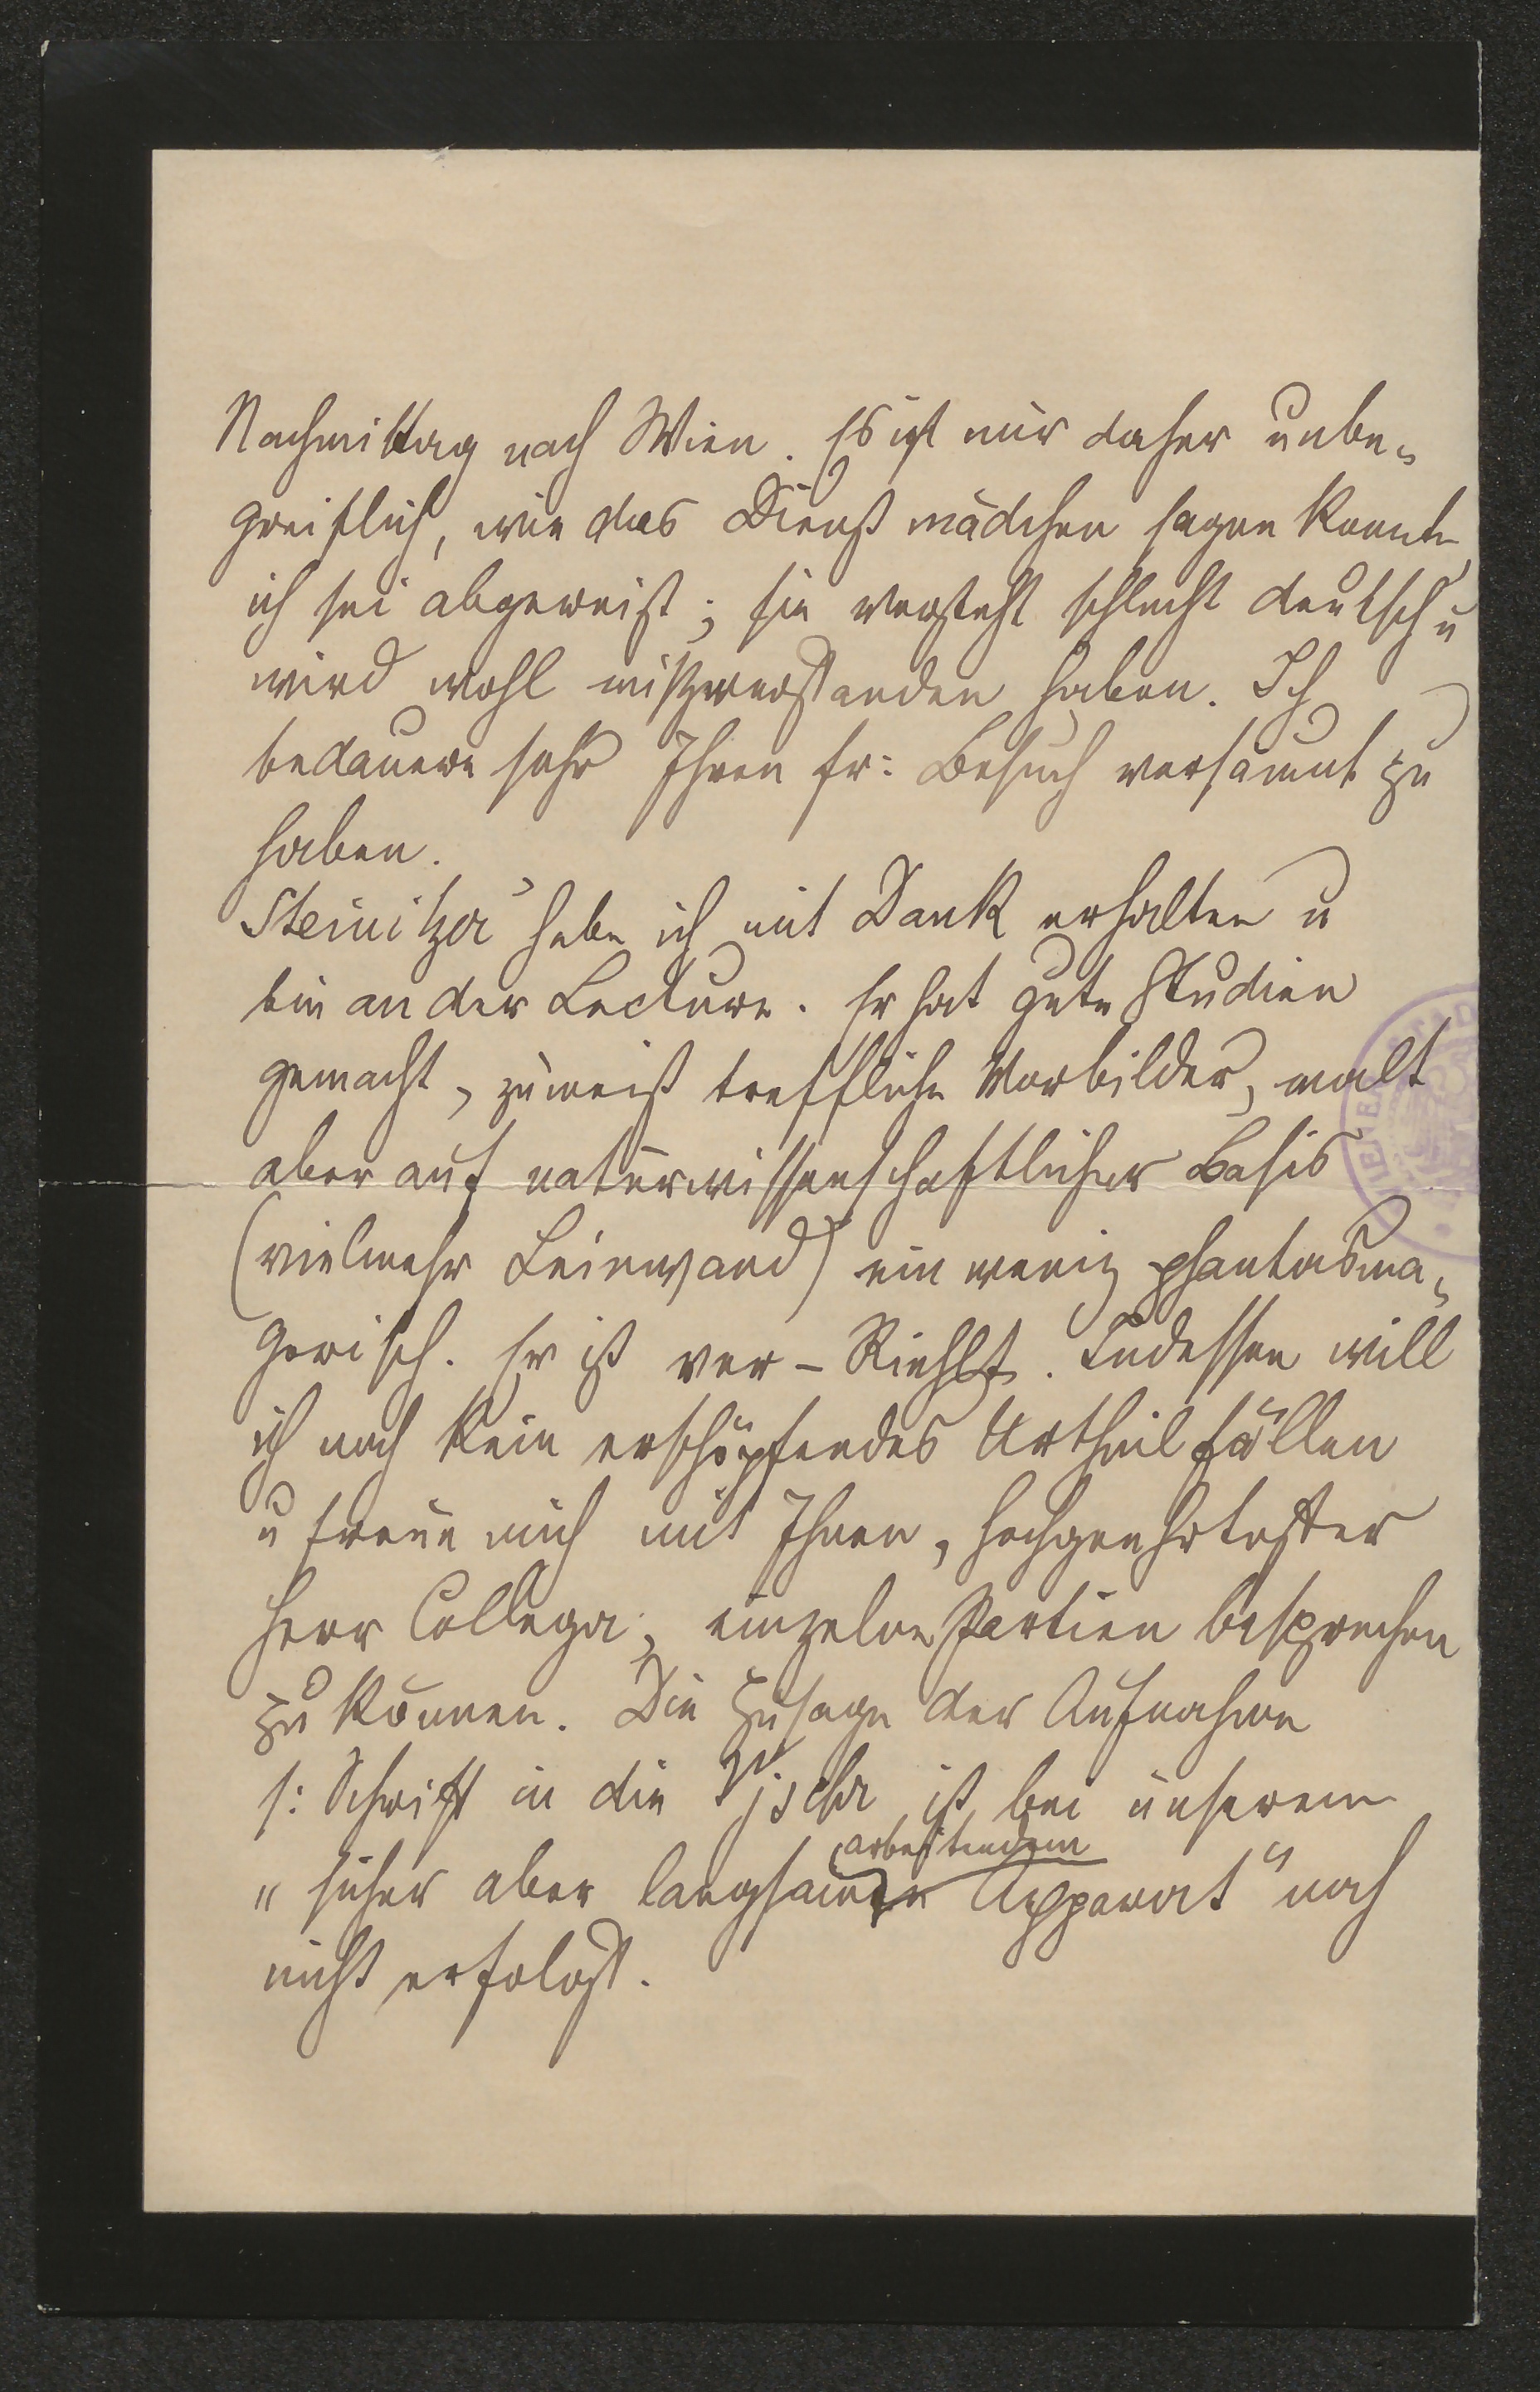 Nachmittag nach Wien. Es ist mir daher unbe-
greiflich, wie das Dienstmädchen sagen konnte,
ich sei abgereist; sie versteht schlecht deutsch u
wird wohl mißverstanden haben. Ich
bedauere sehr Ihren fr: Besuch versäumt zu
haben.
Steinitzer habe ich mit Dank erhalten u
bin an der Lecture. Er hat gute Studien
gemacht, zumeist treffliche Vorbilder, malt
aber auf naturwissenschaftlicher Basis
(vielmehr Leinwand) ein wenig phantasma-
gorisch. Er ist ver-Riehlt. Indessen will
ich noch kein erschöpfendes Urtheil fällen
u freue mich mit Ihnen, hochgeehrtester
Herr Collega, einzelne Partien besprechen
zu können. Die Zusage der Aufnahme
s: Schrift in die ist bei unserem
arbeitendem
"sicher aber langsam Apparat" noch
nicht erfolgt.